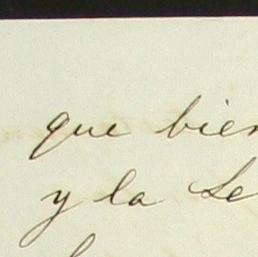 que bien
y la Se